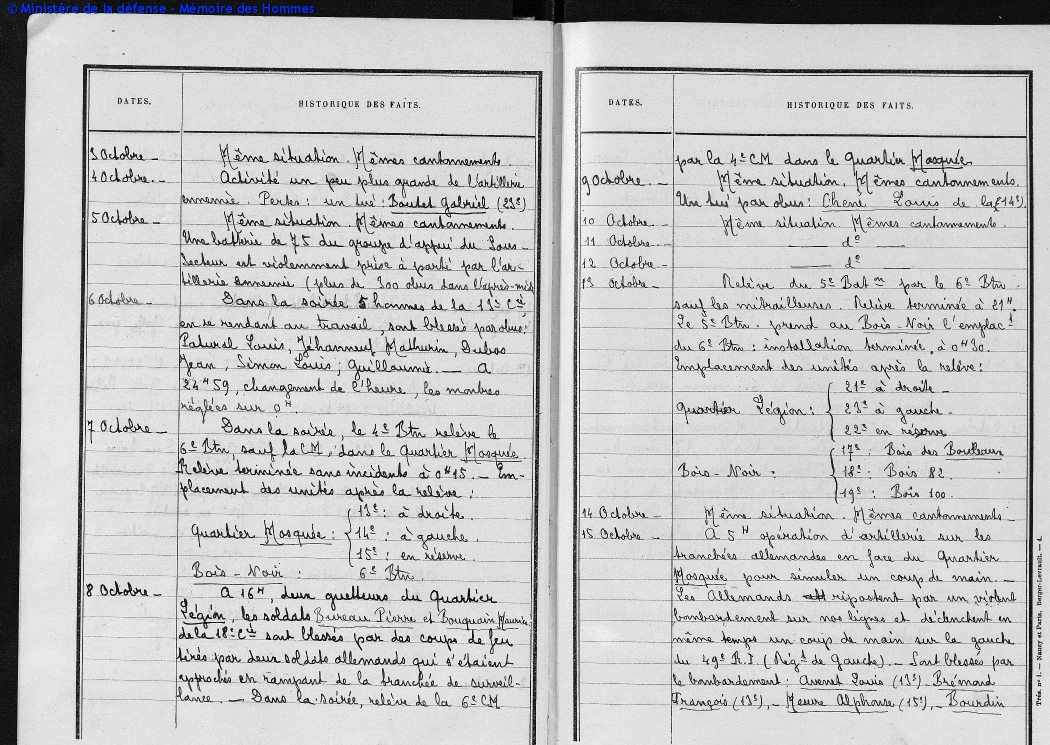 © Ministère de la défense - Mémoire des Hommes
DATES. HISTORIQUE DES FAITS.
3 Octobre _ Même situation. Mêmes cantonnements.
4 Octobre. _ Activité un peu plus grande de l'artillerie
ennemie. Pertes: un tué: Boutet Gabriel (23e)
5 Octobre _ Même situation. Mêmes cantonnements.
Une batterie de 75 du groupe d'appui du Sous-
Secteur est violemment prise à partie par l'ar-
tillerie ennemie (plus de 300 obus dans l'après-midi
6 Octobre _ Dans la soirée 5 hommes de la 13e Cie
en se rendant au travail, sont blessés par obus:
Paturel Louis, Jéhanneuf Mathurin, Dubos
Jean, Simon Louis; Guillaume. _ A
24H59, changement de l'heure, les montres
réglées sur 0H.
7 Octobre _ Dans la soirée, le 4e Btn relève le
6e Btn, sauf la CM, dans le Quartier Mosquée.
Relève terminée sans incidents à 0H15. _ Em-
placement des unités après la relève:
Quartier Mosquée: { 13e: à droite.
14e: à gauche.
15e: en réserve
Bois-Noir: 6e Btn
8 Octobre _ A 16H, deux guetteurs du Quartier
Légion, les soldats Bureau Pierre et Bouquain Maurice
de la 18e Cie sont blessés par des coups de feu
tirés par deux soldats allemands qui s'étaient
approchés en rampant de la tranchée de surveil-
lance. _ Dans la soirée, relève de la 6e CM
DATES. HISTORIQUE DES FAITS.
par la 4e CM dans le Quartier Mosquée
9 Octobre. _ Même situation. Mêmes cantonnements.
Un tué par obus: Chené Louis de la (14e).
10 Octobre. _ Même situation. Mêmes cantonnements.
11 Octobre. _ ___ do ___
12 Octobre. _ ___ do ___
13 Octobre. Relève du 5e Baton par le 6e Btn
sauf les mitrailleuses. Relève terminée à 21H.
Le 5e Btn. prend au Bois-Noir l'emplact
du 6e Btn: installation terminée, à 0H30.
Emplacement des unités après la relève:
Quartier Légion: { 21e à droite _
23e à gauche _
22e en réserve
Bois-Noir: { 17e: Bois des Bouleaux
18e: Bois 82.
19e: Bois 100.
14 Octobre _ Même situation. Mêmes cantonnements _
15 Octobre. _ A 5H opération d'artillerie sur les
tranchées allemandes en face du Quartier
Mosquée pour simuler un coup de main. _
Les Allemands ripostent par un violent
bombardement sur nos lignes et déclenchent en
même temps un coup de main sur la gauche
du 49e R.I. (Régt de Gauche). _ Sont blessés par
le bombardement: Avenet Louis (13e) _ Brémond
François (13e), _ Mesure Alphonse (15e), _ Bourdin
Nancy et Paris, Berger-Levrault. — 4.